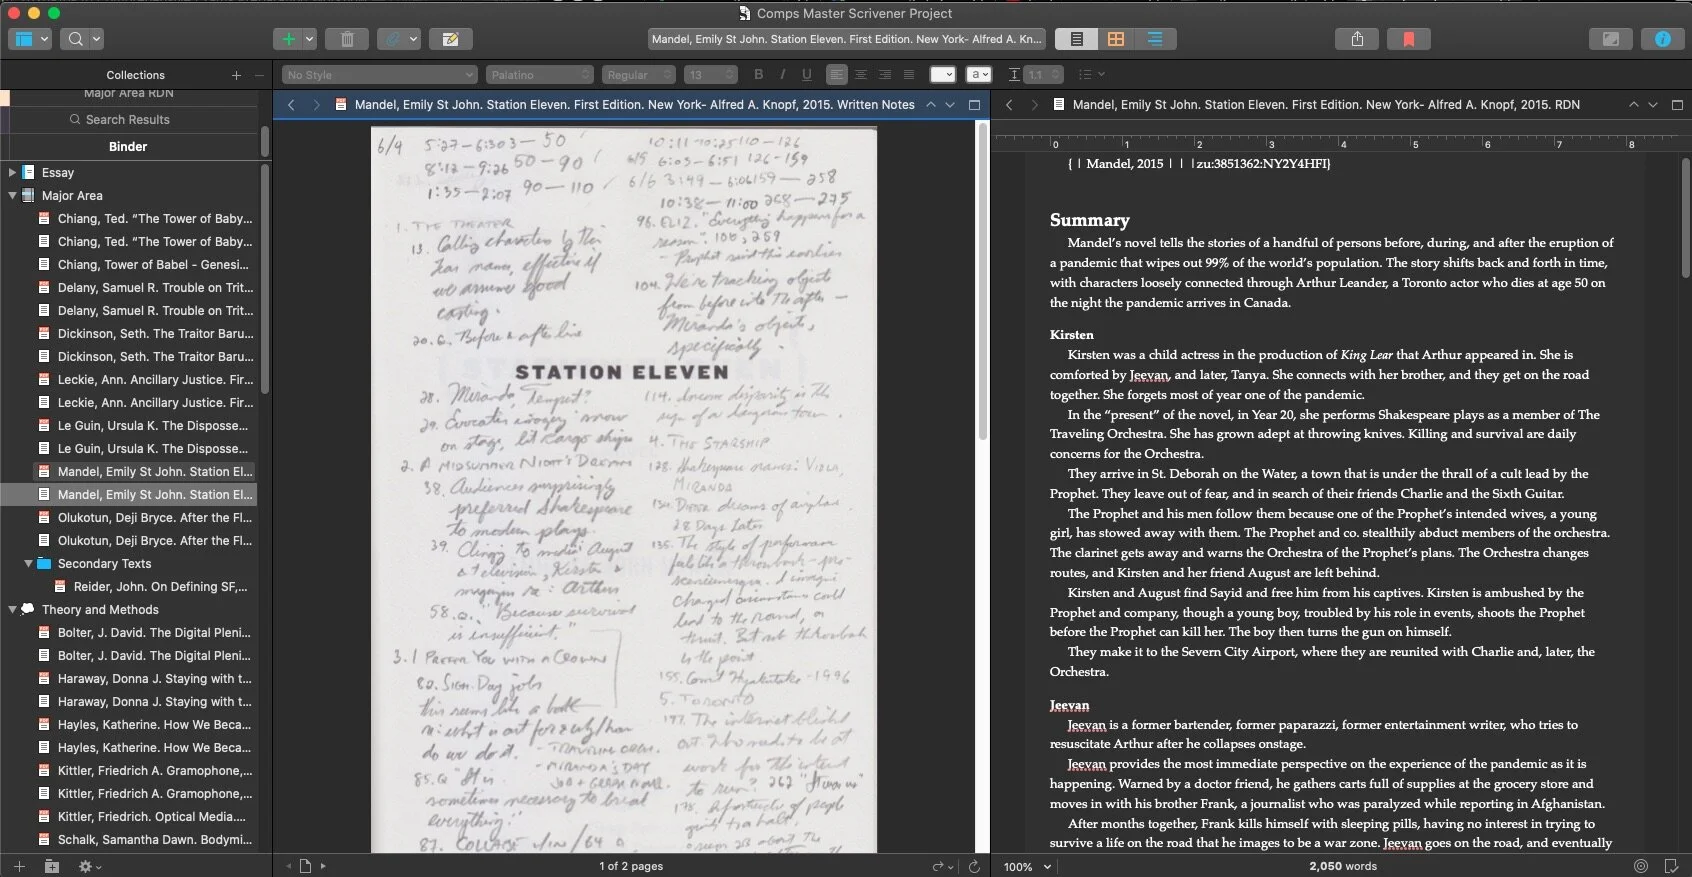 Comps Master Scrivener Project
Mandel, Emily St John. Station Eleven. First Edition. New York- Alfred A. Kn...
Collections
No Style
Palatino
Regular
13
B
I
U
a
1.1
Major Area RDN
Search Results
Binder
Essay
Major Area
Chiang, Ted. “The Tower of Baby...
Chiang, Ted. “The Tower of Baby...
Chiang, Tower of Babel - Genesi...
Delany, Samuel R. Trouble on Trit...
Delany, Samuel R. Trouble on Trit...
Dickinson, Seth. The Traitor Baru...
Dickinson, Seth. The Traitor Baru...
Leckie, Ann. Ancillary Justice. Fir...
Leckie, Ann. Ancillary Justice. Fir...
Le Guin, Ursula K. The Disposse...
Le Guin, Ursula K. The Disposse...
Mandel, Emily St John. Station El...
Mandel, Emily St John. Station El...
Olukotun, Deji Bryce. After the Fl...
Olukotun, Deji Bryce. After the Fl...
Secondary Texts
Reider, John. On Defining SF,...
Theory and Methods
Bolter, J. David. The Digital Pleni...
Bolter, J. David. The Digital Pleni...
Haraway, Donna J. Staying with t...
Haraway, Donna J. Staying with t...
Hayles, Katherine. How We Beca...
Hayles, Katherine. How We Beca...
Kittler, Friedrich A. Gramophone,...
Kittler, Friedrich A. Gramophone,...
Kittler, Friedrich. Optical Media....
Schalk, Samantha Dawn. Bodymi...
Mandel, Emily St John. Station Eleven. First Edition. New York- Alfred A. Knopf, 2015. Written Notes
6/4 5:27-6:303 - 50
8:12 - 9:26 50 - 90
1:35 - 2:07 90 - 110
1. THE THEATER
13. Calling characters by their
effective if
we assume good
casting.
20. Q. Before & after line
STATION ELEVEN
28. Miranda, Tempest?
29. Evocative imagery: snow
on stage, lit cargo ships
2. A MIDSUMMER NIGHT'S DREAM
38. Audiences surprisingly
preferred Shakespeare
to modern plays.
39. Clings to media: August
& television, Kirsten &
magazines re: Arthur
58. Q. "Because survival
is insufficient."
3. I PREFER YOU WITH A CROWN
80. Sign. Day jobs
this seems like a book
re: what is art for & why/how
do we do it. - TRAVELING ORCH.
- MIRANDA'S DAY
JOB
85. Q "It is
sometimes necessary to break
everything."
87. COLLAPSE
10:11 - 10:25 110 - 126
6/5 6:03 - 6:51 126 - 159
6/6 3:49 - 6:06 159 - 258
10:38 - 11:00 268 - 275
96. ELIZ. "Everything happens for a
reason". 100, 259
- Prophet said this earlier
104. We're tracking objects
from before into the after -
Miranda's objects,
specifically.
114. Income disparity is the
sign of a dangerous town.
4. THE STARSHIP
128. Shakespeare names: VIOLA,
MIRANDA
130. DIETER dreams of airplane.
28 Days Later
135. The style of performance
feels like a throwback - pro-
scenium I imagine
changed circumstances could
lead to the round, or
thrust. But not throwback
is the point.
155. Comet Hyakutake - 1996
5. TORONTO
177. The internet blinked
out. Who needs to be at
work for the internet
to run? 262
178.
of people
about the
1 of 2 pages
Mandel, Emily St John. Station Eleven. First Edition. New York- Alfred A. Knopf, 2015. RDN
0 1 2 3 4 5 6 7 8
{ | Mandel, 2015 | | |zu:3851362:NY2Y4HFI}
Summary
Mandel’s novel tells the stories of a handful of persons before, during, and after the eruption of
a pandemic that wipes out 99% of the world’s population. The story shifts back and forth in time,
with characters loosely connected through Arthur Leander, a Toronto actor who dies at age 50 on
the night the pandemic arrives in Canada.
Kirsten
Kirsten was a child actress in the production of King Lear that Arthur appeared in. She is
comforted by Jeevan, and later, Tanya. She connects with her brother, and they get on the road
together. She forgets most of year one of the pandemic.
In the “present” of the novel, in Year 20, she performs Shakespeare plays as a member of The
Traveling Orchestra. She has grown adept at throwing knives. Killing and survival are daily
concerns for the Orchestra.
They arrive in St. Deborah on the Water, a town that is under the thrall of a cult lead by the
Prophet. They leave out of fear, and in search of their friends Charlie and the Sixth Guitar.
The Prophet and his men follow them because one of the Prophet’s intended wives, a young
girl, has stowed away with them. The Prophet and co. stealthily abduct members of the orchestra.
The clarinet gets away and warns the Orchestra of the Prophet’s plans. The Orchestra changes
routes, and Kirsten and her friend August are left behind.
Kirsten and August find Sayid and free him from his captives. Kirsten is ambushed by the
Prophet and company, though a young boy, troubled by his role in events, shoots the Prophet
before the Prophet can kill her. The boy then turns the gun on himself.
They make it to the Severn City Airport, where they are reunited with Charlie and, later, the
Orchestra.
Jeevan
Jeevan is a former bartender, former paparazzi, former entertainment writer, who tries to
resuscitate Arthur after he collapses onstage.
Jeevan provides the most immediate perspective on the experience of the pandemic as it is
happening. Warned by a doctor friend, he gathers carts full of supplies at the grocery store and
moves in with his brother Frank, a journalist who was paralyzed while reporting in Afghanistan.
After months together, Frank kills himself with sleeping pills, having no interest in trying to
survive a life on the road that he images to be a war zone. Jeevan goes on the road, and eventually
100%
2,050 words